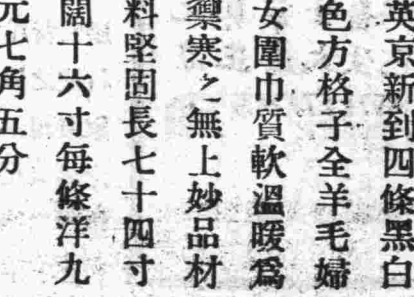 英京新到四條黑白
色方格子全羊毛婦
女圍巾質軟溫暖爲
禦寒之無上妙品材
料堅固長七十四寸
闊十六寸每條洋九
元七角五分